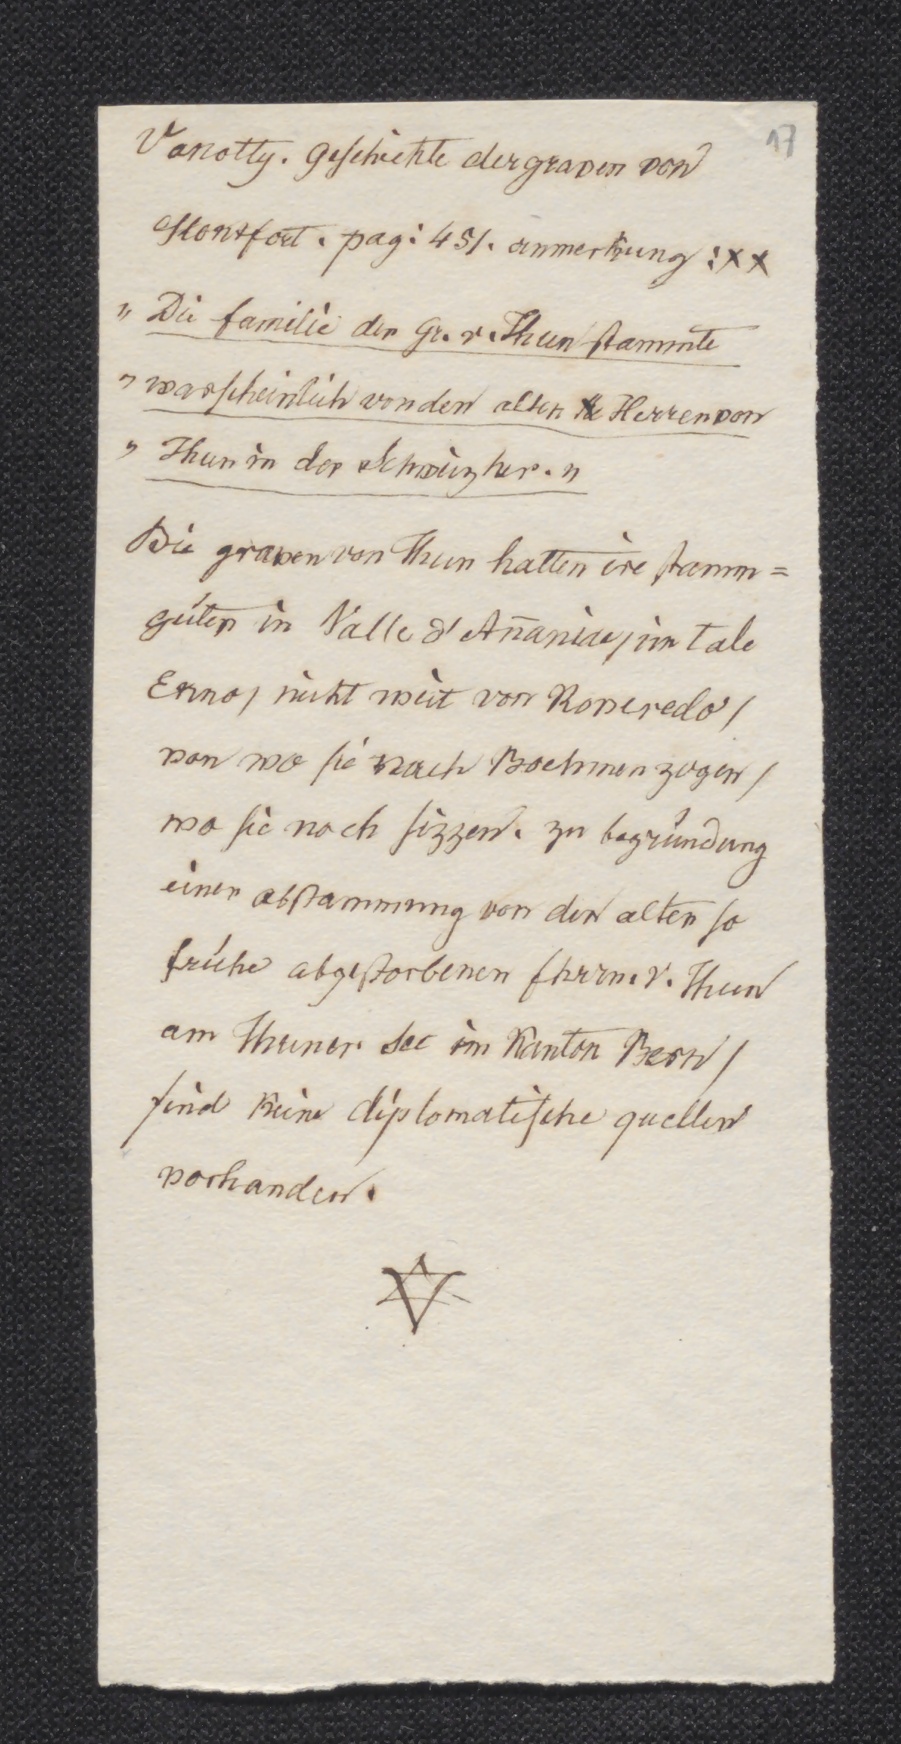 17
Vanotty. geschichte der graven von
Montfort. pag: 451. anmerkung :xx
" Die familie der Gr. v. Thun stammte
" warscheinlich von den alten Herren von
" Thun in der Schweiz her. "
Die graven von Thun hatten ire stamm=
güter in Valle d'Añania, im tale
nicht weit von Roveredo,
von wo sie nach Boehmen zogen,
wo sie noch sizzen. zu begründung
einer abstammung von den alten so
frühe abgestorbenen fhrrn. v. Thun
am Thuner See im Kanton Bern,
sind keine diplomatische quellen
vorhanden.